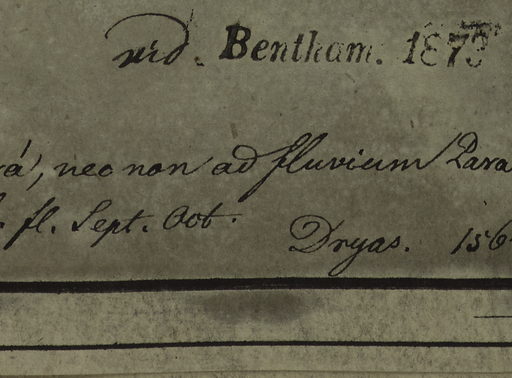 vid. Bentham. 1873
rá, nec non ad fluvium Para
fl. Sept. Oct.
Dryas. 156